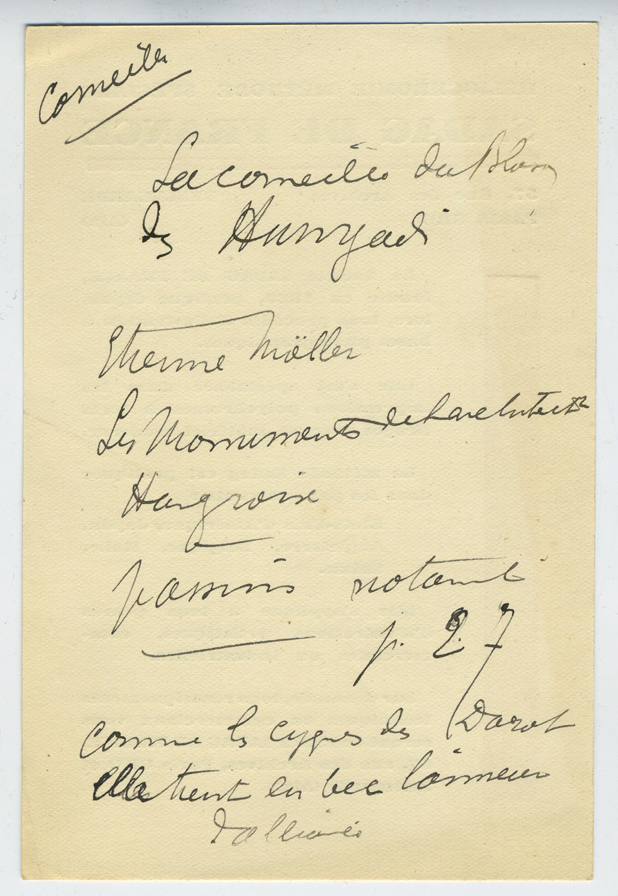 Corneille
La corneille du Blason
des Hunyadi
Etienne Möller
Les Monuments de l'architecture
Hongroise
passim notamt
p. 27
comme les cygnes des
elle tient en bec l'anneau
d'alliance